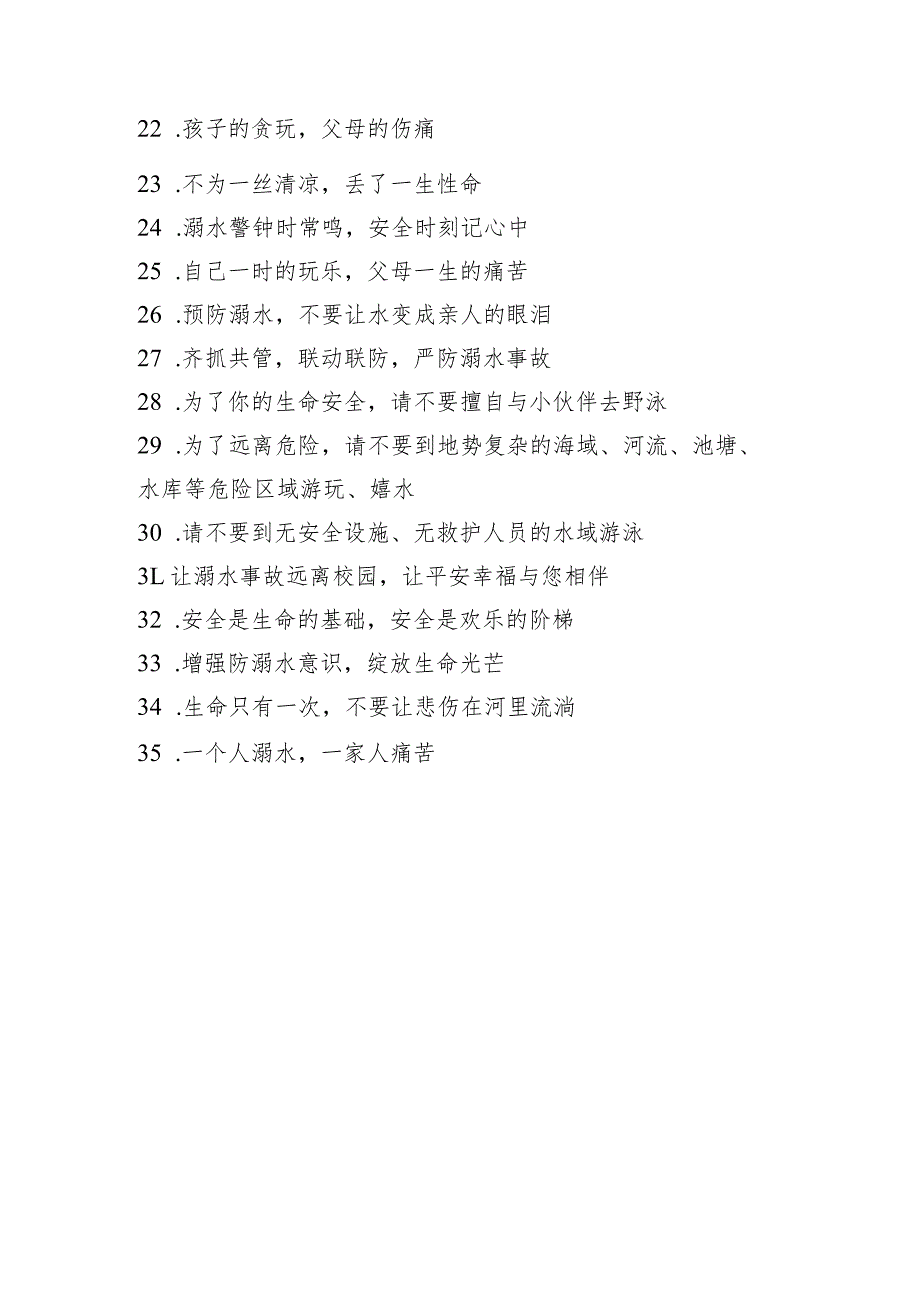 22 .孩子的贪玩，父母的伤痛
23 .不为一丝清凉，丢了一生性命
24 .溺水警钟时常鸣，安全时刻记心中
25 .自己一时的玩乐，父母一生的痛苦
26 .预防溺水，不要让水变成亲人的眼泪
27 .齐抓共管，联动联防，严防溺水事故
28 .为了你的生命安全，请不要擅自与小伙伴去野泳
29 .为了远离危险，请不要到地势复杂的海域、河流、池塘、
水库等危险区域游玩、嬉水
30 .请不要到无安全设施、无救护人员的水域游泳
3L 让溺水事故远离校园，让平安幸福与您相伴
32 .安全是生命的基础，安全是欢乐的阶梯
33 .增强防溺水意识，绽放生命光芒
34 .生命只有一次，不要让悲伤在河里流淌
35 .一个人溺水，一家人痛苦